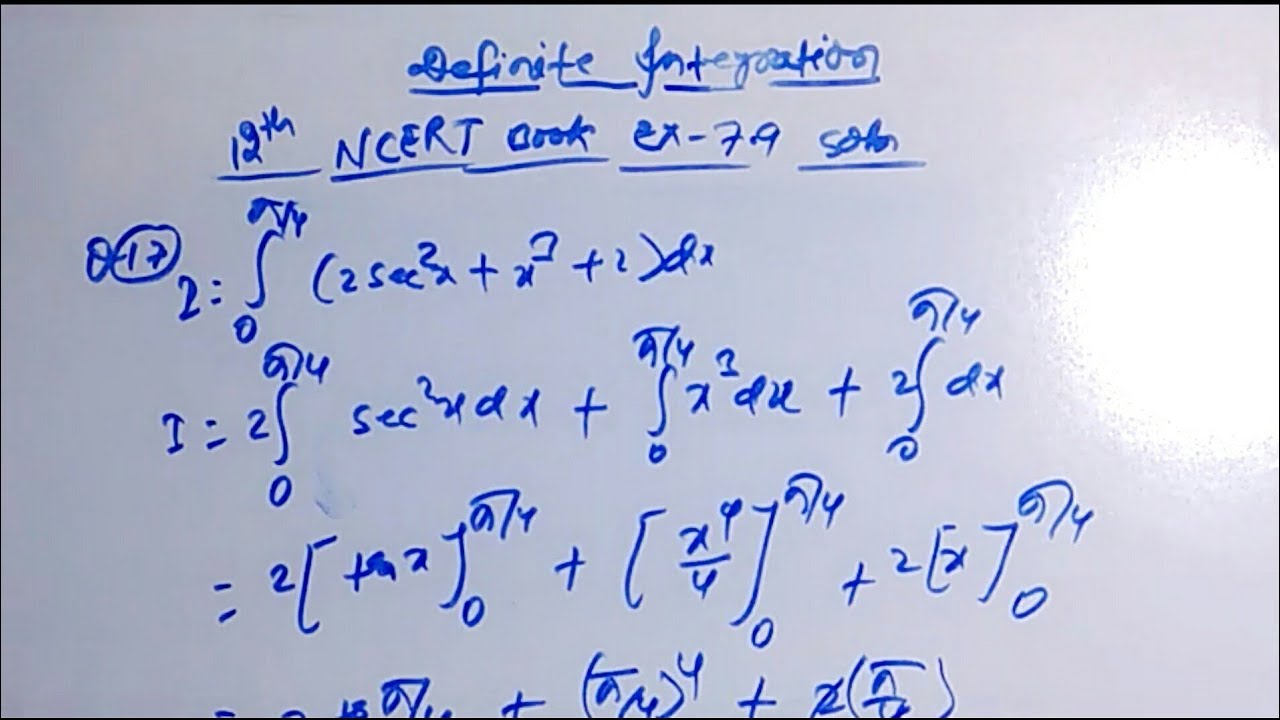 Definite Integration
12th NCERT Book ex-7.9 soln
Q-17 I = ∫₀^π/4 (2sec²x + x³ + 2)dx
I = 2∫₀^π/4 sec²x dx + ∫₀^π/4 x³dx + 2∫₀^π/4 dx
= 2[tan x]₀^π/4 + [x⁴/4]₀^π/4 + 2[x]₀^π/4
= π/4 + (π/4)⁴ + 2(π/4)